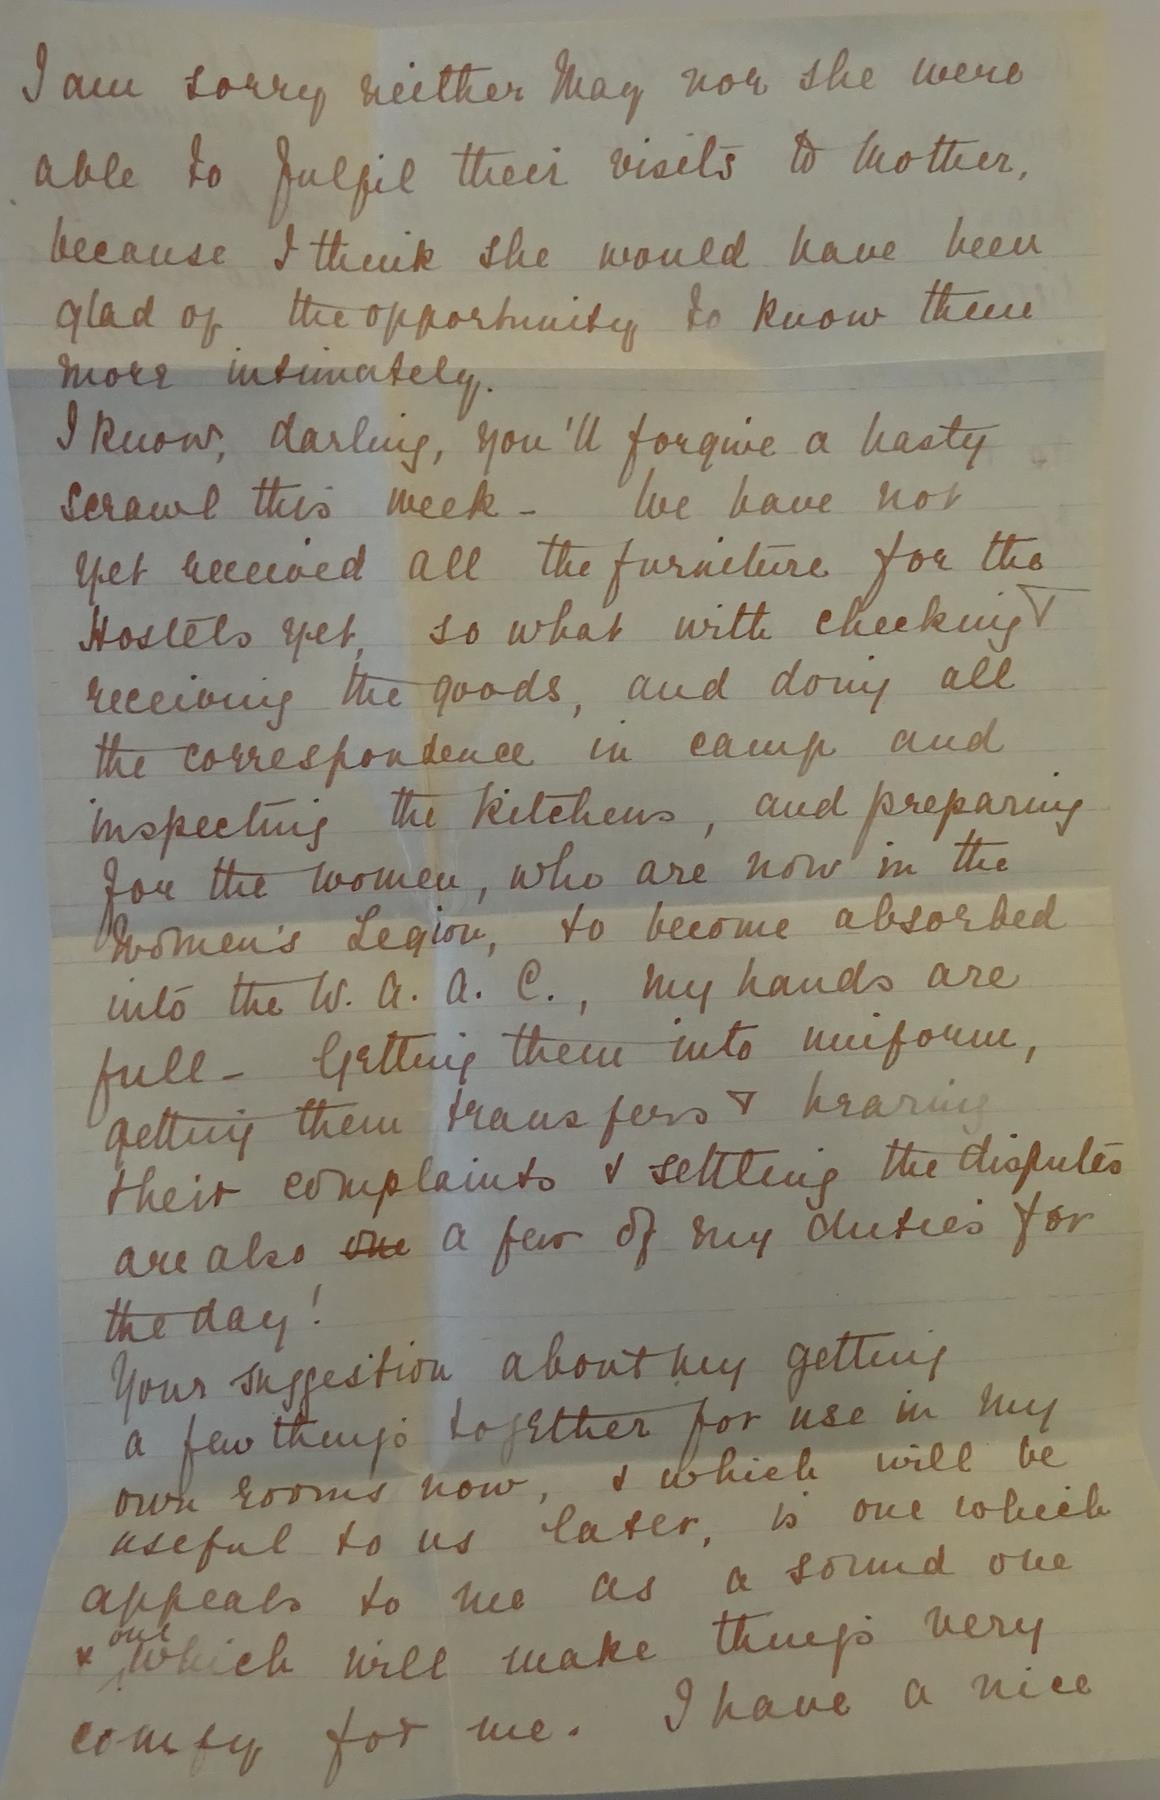 I am sorry neither May nor she were
able to fulfil their visits to Mother,
because I think she would have been
glad of the opportunity to know them
more intimately.
I know, darling, you'll forgive a hasty
scrawl this week - We have not
yet received all the furniture for the
Hostels yet, so what with checking &
receiving the goods, and doing all
the correspondence in camp and
inspecting the kitchens, and preparing
for the women, who are now in the
Women's Legion, to become absorbed
into the W. A. A. C., my hands are
full - Getting them into uniform,
getting them transfers & hearing
their complaints & settling the disputes
are also one a few of my duties for
the day!
Your suggestion about my getting
a few things together for use in my
own rooms now, & which will be
useful to us later, is one which
appeals to me as a sound one
& one which will make things very
comfy for me. I have a nice